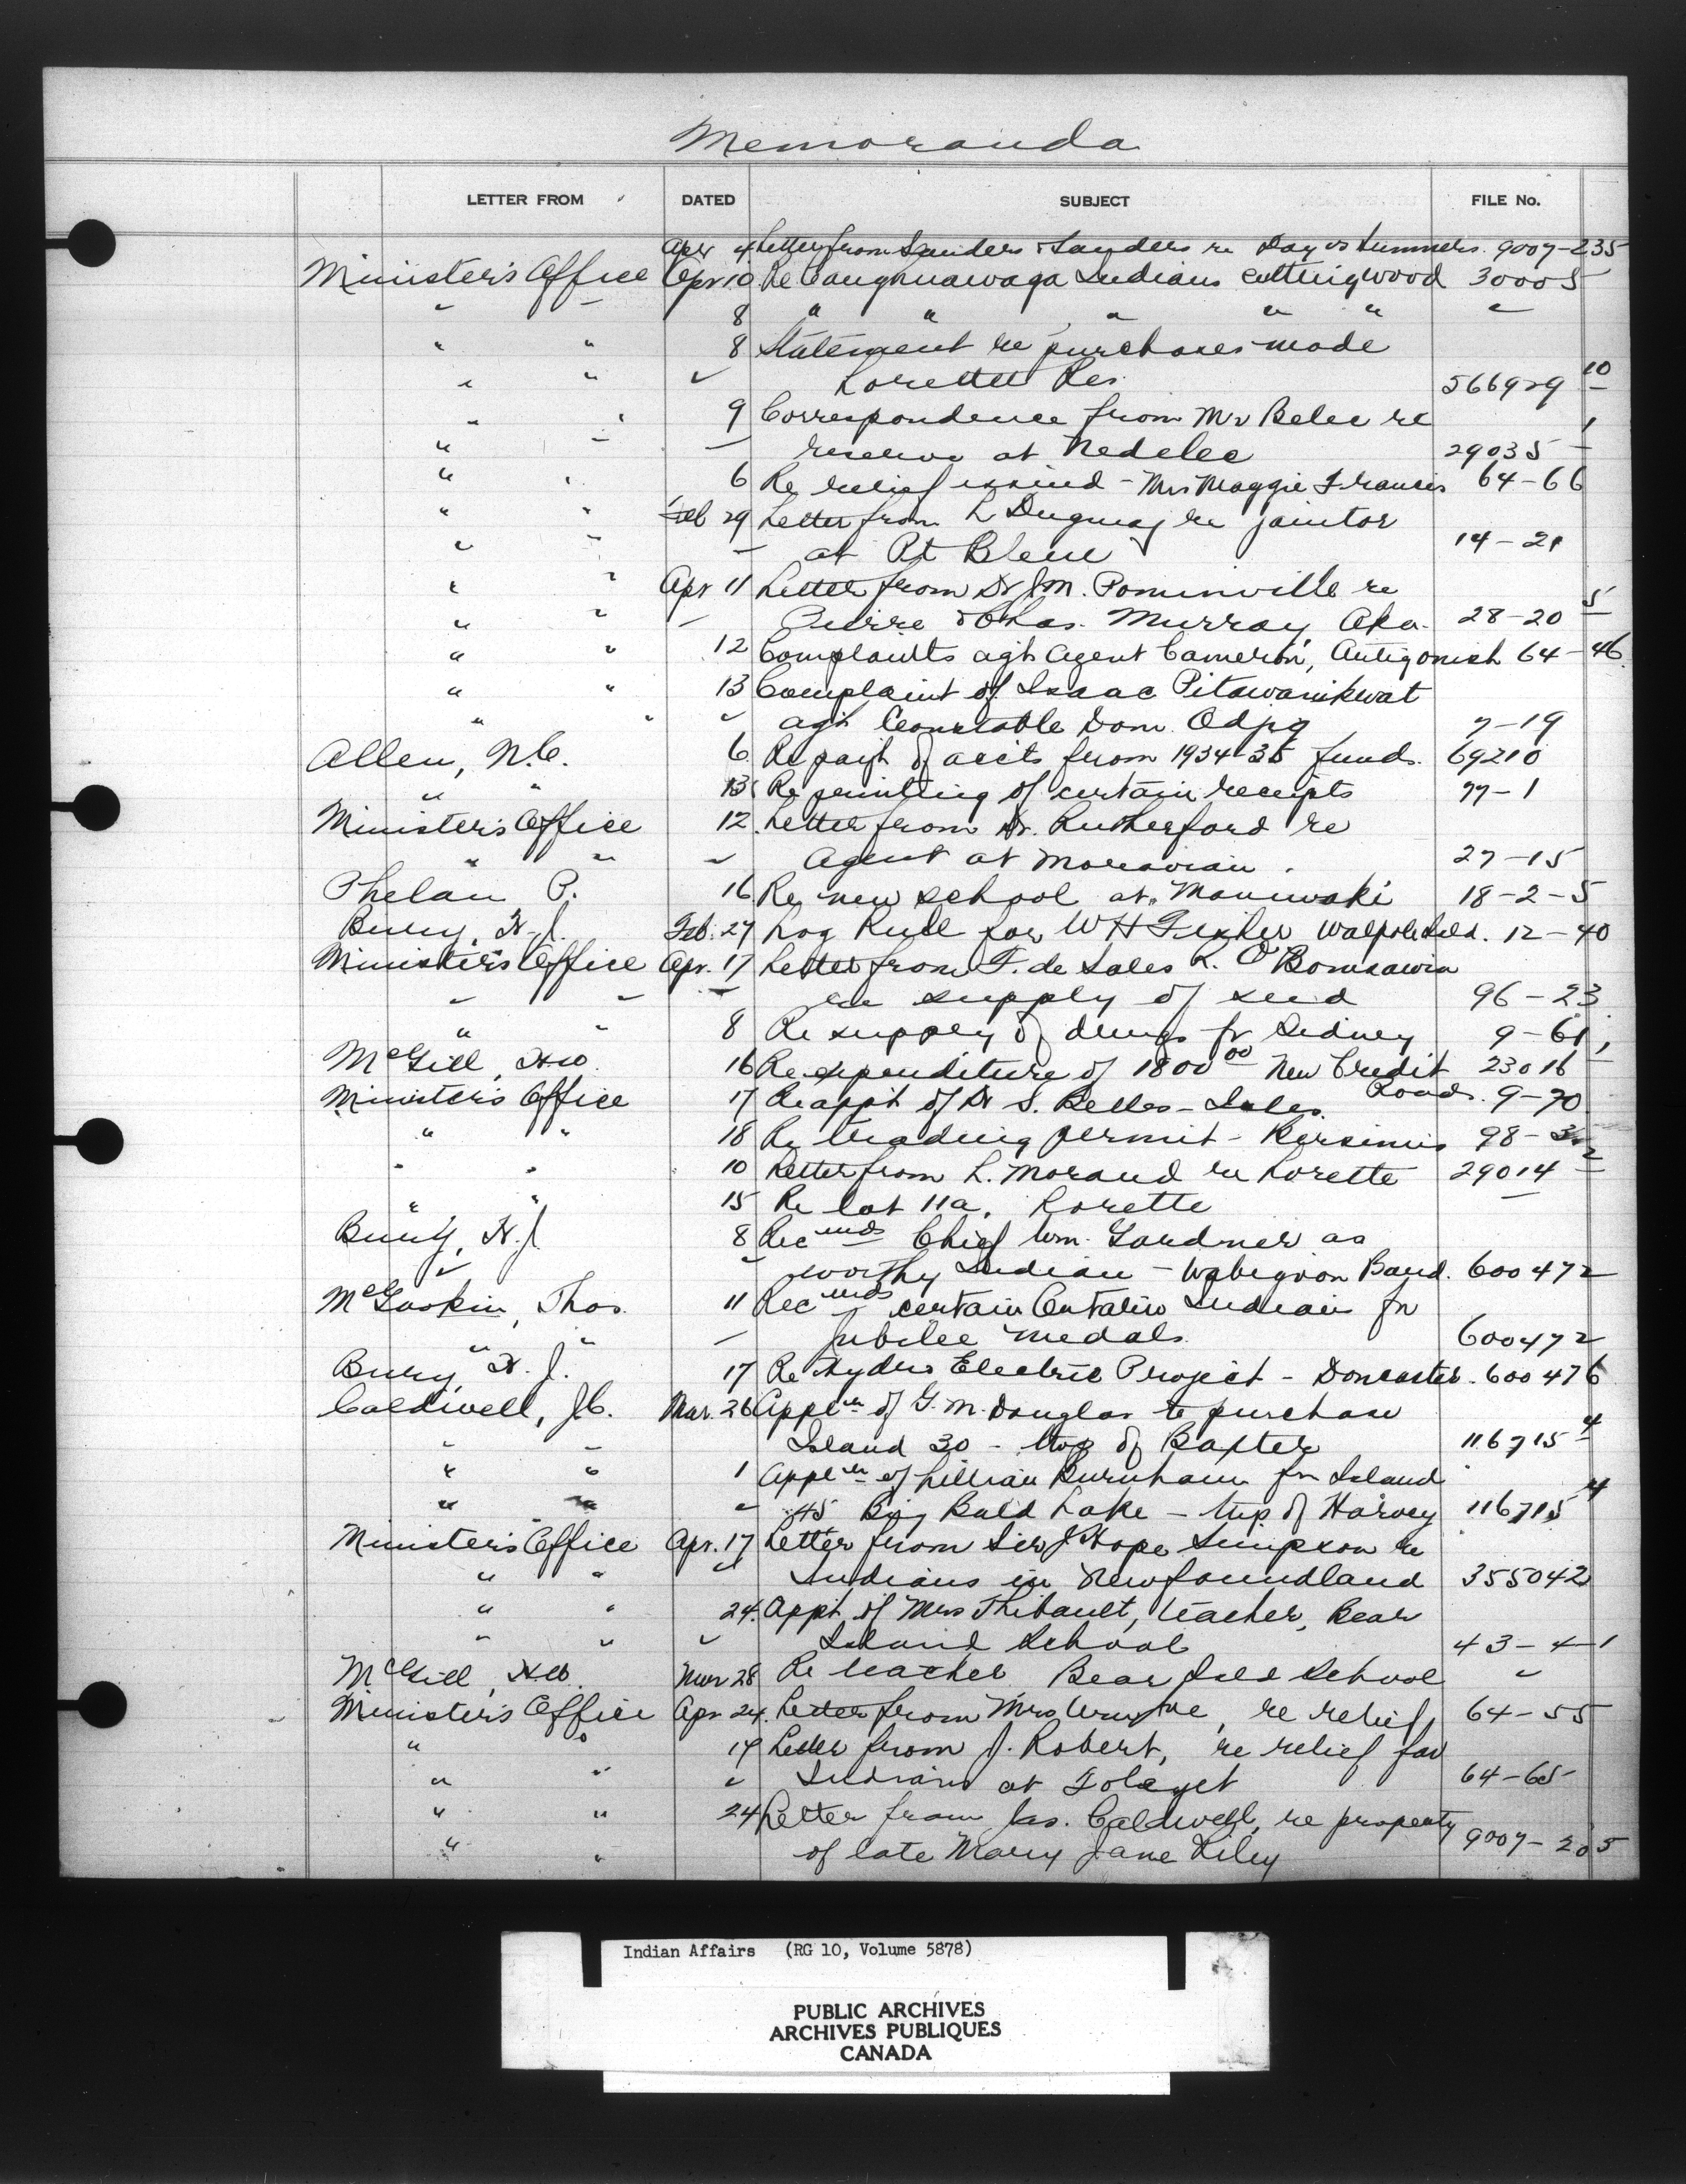 Memoranda
LETTER FROM DATED SUBJECT FILE No.
Apr 4 Letter from Sanders & Sanders re Day vs Summers. 9007-235
Minister's Office Apr 10 Re Caughnawaga Indians cutting wood 30005
" " 8 " " " " " "
" " 8 Statement re purchases made
" " " Lorette Res. 566929 10
" " 9 Correspondence from Mr Belec re
" " " reserve at Nedelec 29035 1
" " 6 Re relief issued - Mrs Maggie Francis 64-66
" " Feb 29 Letter from L Duguay re janitor
" " " at Pt Bleue 14-21
" " Apr 11 Letter from Dr J.M. Pominville re
" " " Pierre & Chas. Murray, Oka. 28-20 5
" " 12 Complaints agt Agent Cameron, Antigonish 64-46
" " 13 Complaint of Isaac Pitawanikwat
" " " agt Constable Dom. Odjig 7-19
Allen, N.C. 6 Re payt of accts from 1934-35 funds. 69210
" " 13 Re printing of certain receipts 77-1
Minister's Office 12. Letter from Dr. Rutherford re
" " " Agent at Moravian. 27-15
Phelan P. 16 Re new school at Maniwaki 18-2-5
Bury, H.J. Feb. 27 Log Rule for W H Walpole Isld. 12-40
Minister's Office Apr. 17 Letter from F. de Sales R. O'Bomsawin
" " " re supply of seed 96-23
" " 8 Re supply of drugs fr Sidney 9-61
McGill, H.W. 16 Re expenditure of 1800 00 New Credit 23016
Minister's Office 17 Re appt of Dr S. Belles - Roads. 9-70
" " 18 Re trading permit - Bersimis 98-3
" " 10 Letter from L. Morand re Lorette 29014 2
" " 15 Re lot 11a, Lorette "
Bury, H.J. 8 Recmds Chief Wm. Gardner as
" " worthy Indian - Wabigoon Band. 600472
McGookin, Thos. 11 Recmds certain Ontario Indians for
" " " Jubilee medals. 600472
Bury, H.J. 17 Re Hydro Electric Project - Doncaster. 600476
Caldwell, J.C. Mar. 26 Applcn of G.M. Douglas to purchase
" " Island 30 - twp of Baxter 116715 4
" " 1 Applcn of Lillian Burnham for Island
" " " 45 Big Bald Lake - twp of Harvey 116715 4
Minister's Office Apr. 17 Letter from Sir J. Hope Simpson re
" " " Indians in Newfoundland 355042
" " 24. Appt of Mrs Thibault, teacher, Bear
" " " Island School 43-4-1
McGill, H.W. Mar 28 Re teacher Bear Isld School "
Minister's Office Apr 24. Letter from Mrs re relief 64-55
" " 19 Letter from J. Robert, re relief for
" " " Indians at Foleyet 64-65
" " 24 Letter from Jas. Caldwell, re property
" " of late Mary Jane Riley 9007-205
Indian Affairs (RG 10, Volume 5878)
PUBLIC ARCHIVES
ARCHIVES PUBLIQUES
CANADA